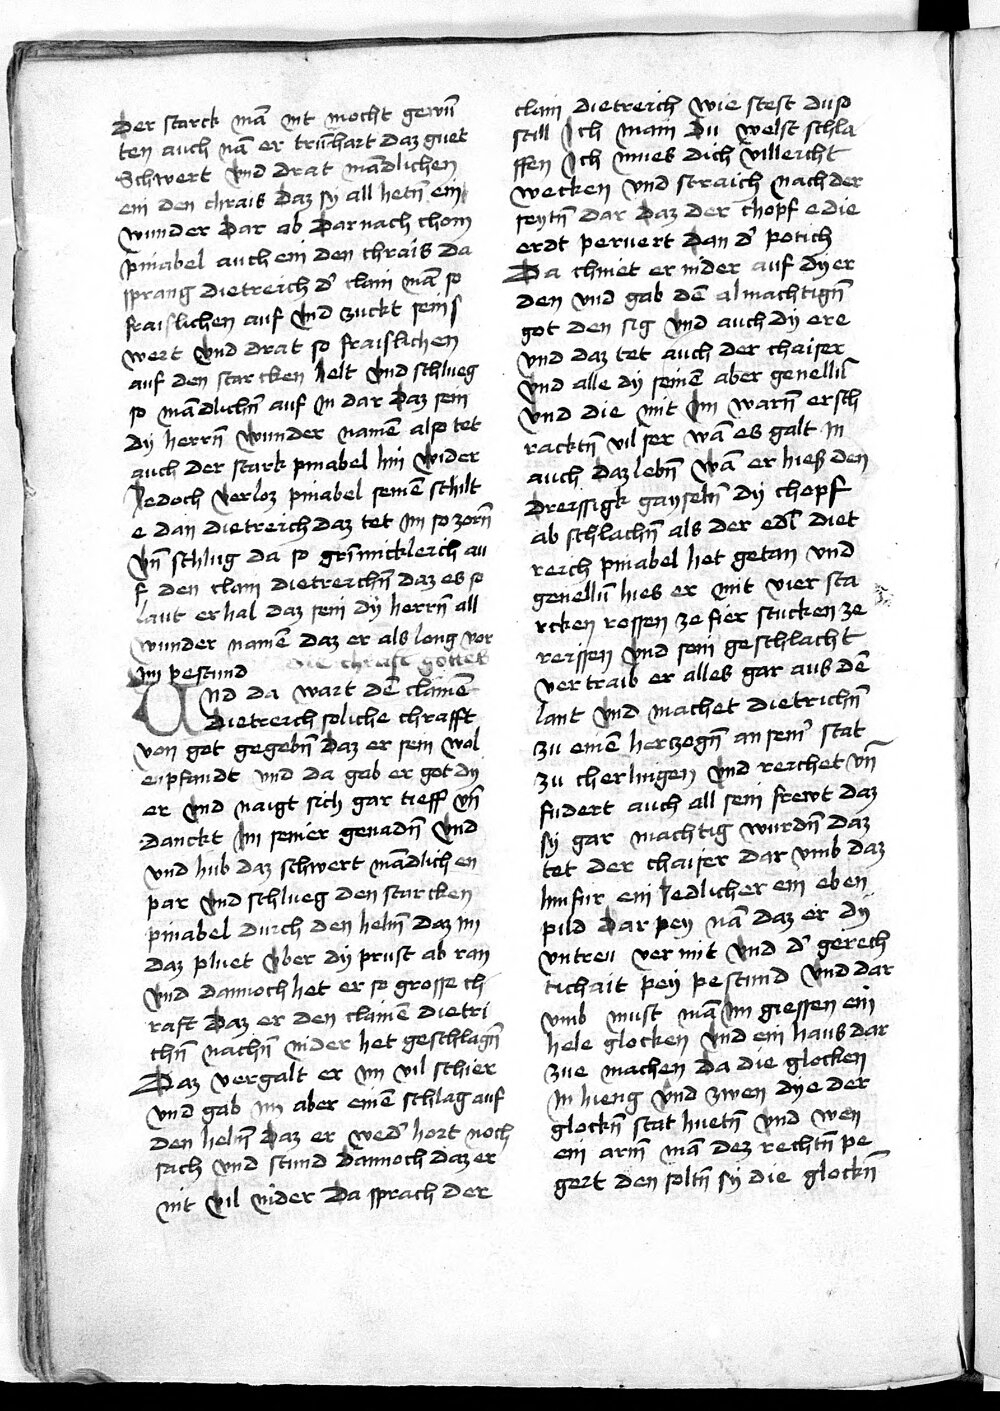 Der starck mā nit mocht gewīn
ten auch nā er trūhart daz guet
Schwert vnd drat mādlichen
ein den chrais Daz sy all hetn̄ ein
wunder Dar ab Darnach chom
pinabel auch ein den chrais da
sprang dietreich d' clain mā so
fraislichen auf vnd zuckt sein s
wert vnd drat so fraislichen
auf den starcken helt vnd schlueg
so mādlichn̄ auf in dar Daz sein
dy herrn̄ wunder namē also tet
auch der stark pinabel hin wider
Iedoch verloz pinabel seinē schilt
e dan dietreich daz tet im so zorn̄
vn̄ schlug da so grim̄icklich au
f den clain dietreichn̄ daz es so
laut erhal daz sein dy herrn̄ all
wunder namē daz er als long vor
im pestund die chraft gottes
Und da wart dē clainē
dietreich soliche chrafft
von got gegebn̄ Daz er sein wol
enpfandt vnd da gab er got dy
er vnd naigt sich gar tieff vn̄
danckt im seiner genadn̄ vnd
vnd hub daz schwert mādlichen
par vnd schlueg den starcken
pinabel durch den helm̄ daz im
daz pluet vber dy prust ab ran
vnd dannoch het er so grosse ch
raft Daz er den clainē dietri
chn̄ nachn̄ nider het geschlagn̄
Daz vergalt er im vil schier
vnd gab im aber einē schlag auf
den helm̄ Daz er wed' hort noch
sach vnd stund dannoch daz er
nit vil nider Da sprach der
clain dietreich wie stest du so
still Ich main Du welst schla
ffen Ich mues dich villeicht
wecken vnd straich nach der
seytn̄ dar Daz der chopf e die
erdt peruert Dan d' potich
Da chniet er nider auf dy er
den vnd gab dē almachtign̄
got den sig vnd auch dy ere
vnd daz tet auch der chaiser
vnd alle dy seinē aber genellū
vnd die mit im warn̄ ersch
racktn̄ vil ser wā es galt in
auch daz lebn̄ wā er hieß den
dreissigk gayseln̄ dy chopf
ab schlachn̄ als der edl diet
reich pinabel het getan vnd
genellū hies er mit vier sta
rcken rossen ze fier stucken ze
reissen vnd sein geschlacht
vertraib er alles gar aus dē
lant vnd machet dietrichn̄
zu einē herzogn̄ an sein' stat
zu cherlingen vnd reichet vn̄
fudert auch all sein frewt daz
sy gar machtig wurdn̄ daz
tet der chaiser dar vmb daz
hinfur ein iedlicher ein eben
pild dar pey nā daz er dy
vntreu vermit vnd d' gerech
tichait pey pestund vnd dar
vmb must mā im giessen ein
hele glocken vnd ein haus dar
zue machen da die glocken
in hieng vnd zwen dye der
glockn̄ stat huetn̄ vnd wen
ein arm̄ mā dez rechtn̄ pe
gert den soltn̄ sy die glockn̄